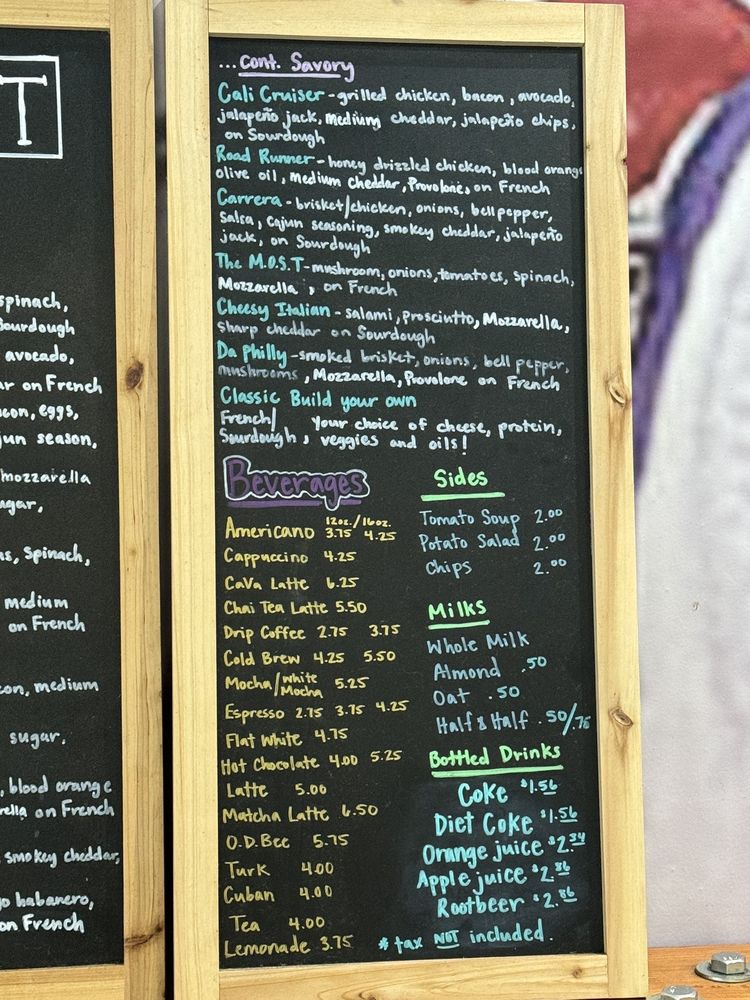 T
spinach,
Sourdough
avocado,
ar on French
con, eggs,
jun season,
mozzarella
ugar,
as, spinach,
medium
on French
con, medium
sugar,
, blood orange
rella on French
smokey cheddar,
go habanero,
on French
...cont. Savory
Cali Cruiser - grilled chicken, bacon, avocado,
jalapeño jack, medium cheddar, jalapeño chips,
on Sourdough
Road Runner - honey drizzled chicken, blood orange
olive oil, medium cheddar, Provolone, on French
Carrera - brisket/chicken, onions, bell pepper,
Salsa, cajun seasoning, smokey cheddar, jalapeño
jack, on Sourdough
The M.O.S.T - mushroom, onions, tomatoes, spinach,
Mozzarella, on French
Cheesy Italian - salami, prosciutto, Mozzarella,
sharp cheddar on Sourdough
Da Philly - smoked brisket, onions, bell pepper,
mushrooms, Mozzarella, Provolone on French
Classic Build your own
French/ Your choice of cheese, protein,
Sourdough, veggies and oils!
Beverages
12oz./16oz.
Americano 3.75 4.25
Cappuccino 4.25
CaVa Latte 6.25
Chai Tea Latte 5.50
Drip Coffee 2.75 3.75
Cold Brew 4.25 5.50
Mocha/White Mocha 5.25
Espresso 2.75 3.75 4.25
Flat White 4.75
Hot Chocolate 4.00 5.25
Latte 5.00
Matcha Latte 6.50
O.D.Bee 5.75
Turk 4.00
Cuban 4.00
Tea 4.00
Lemonade 3.75
Sides
Tomato Soup 2.00
Potato Salad 2.00
Chips 2.00
Milks
Whole Milk
Almond .50
Oat .50
Half & Half .50/.75
Bottled Drinks
Coke $1.56
Diet Coke $1.56
Orange juice $2.34
Apple juice $2.86
Rootbeer $2.86
* tax NOT included.